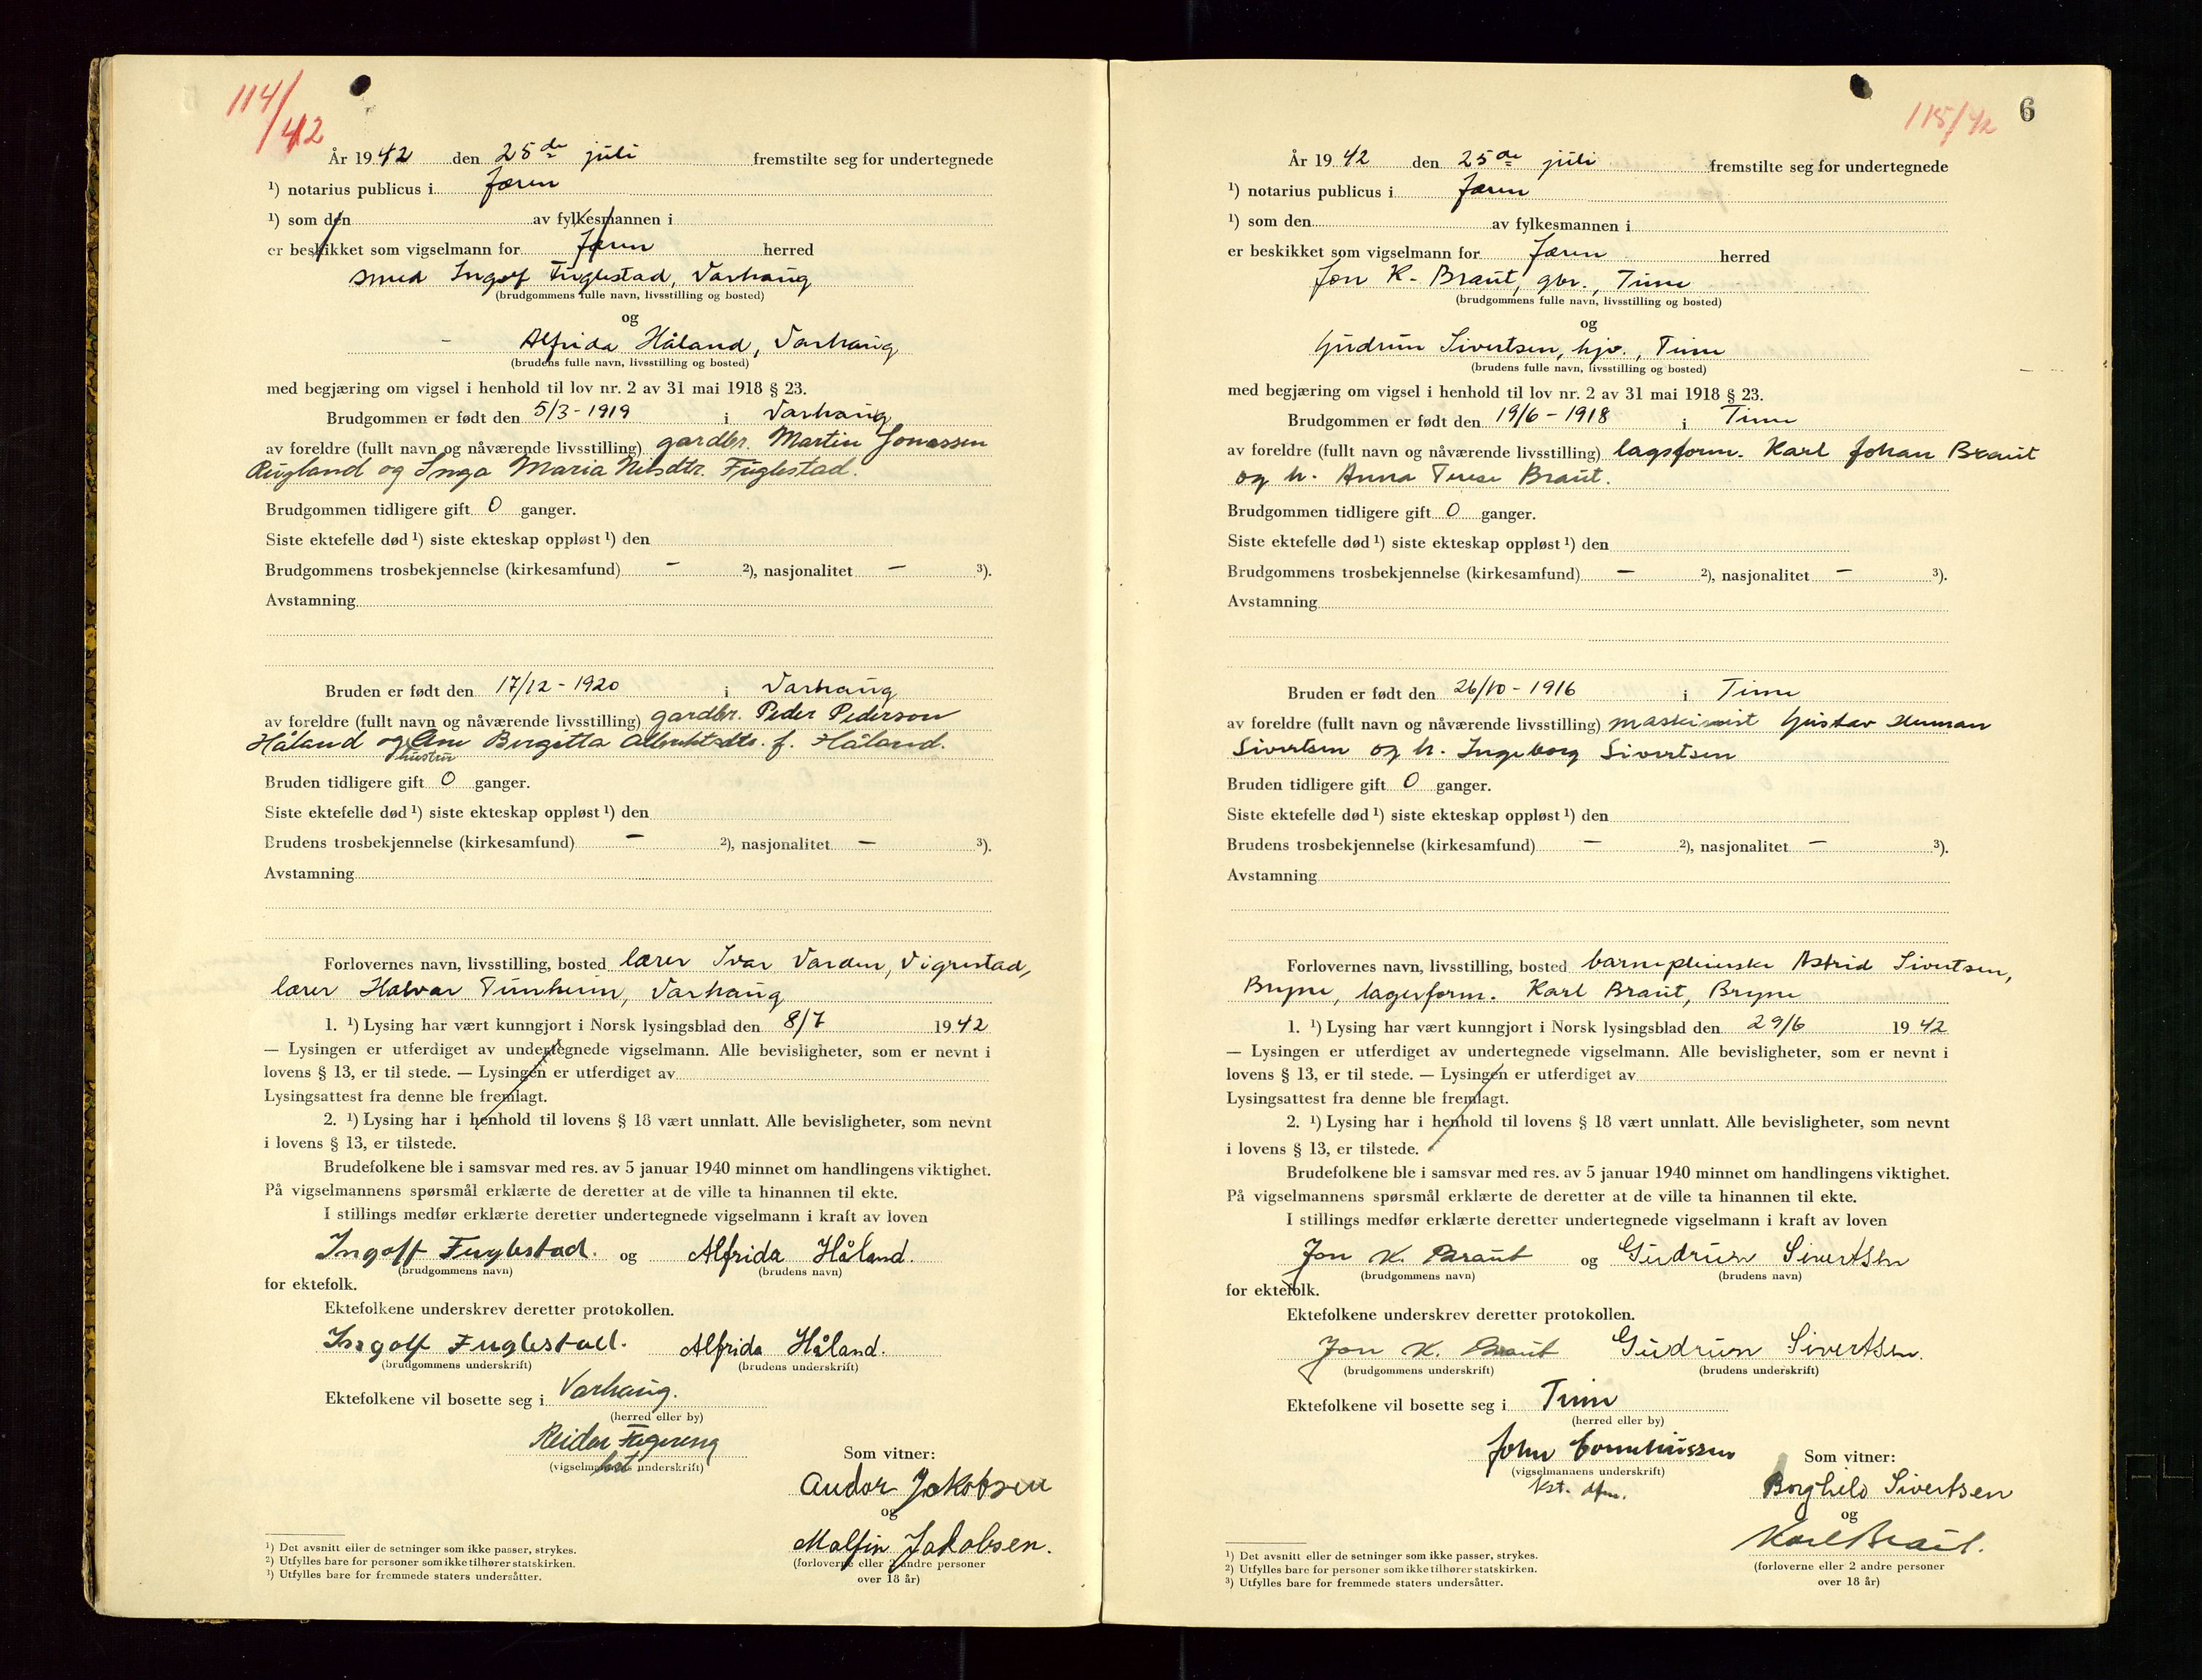 114/42
År 1942 den 25de juli fremstilte seg for undertegnede
¹) notarius publicus i Jæren
¹) som den av fylkesmannen i
er beskikket som vigselmann for Jæren herred
smed Ingolf Fuglestad, Varhaug
(brudgommens fulle navn, livsstilling og bosted)
og
- Alfrida Håland, Varhaug
(brudens fulle navn, livsstilling og bosted)
med begjæring om vigsel i henhold til lov nr. 2 av 31 mai 1918 § 23.
Brudgommen er født den 5/3-1919 i Varhaug
av foreldre (fullt navn og nåværende livsstilling) gardbr. Martin Jonassen
Rugland og Inga Maria Nilsdtr. Fuglestad.
Brudgommen tidligere gift 0 ganger.
Siste ektefelle død ¹) siste ekteskap oppløst ¹) den
Brudgommens trosbekjennelse (kirkesamfund) - ²), nasjonalitet - ³).
Avstamning
Bruden er født den 17/12-1920 i Varhaug
av foreldre (fullt navn og nåværende livsstilling) gardbr. Peder Pederson
Håland og hustru Ane Birgitta Albrektsdtr. f. Håland.
Bruden tidligere gift 0 ganger.
Siste ektefelle død ¹) siste ekteskap oppløst ¹) den
Brudens trosbekjennelse (kirkesamfund) - ²), nasjonalitet - ³).
Avstamning
Forlovernes navn, livsstilling, bosted lærer Ivar Varden, Vigrestad,
lærer Halvar Tunheim, Varhaug
1. ¹) Lysing har vært kunngjort i Norsk lysingsblad den 8/7 1942
— Lysingen er utferdiget av undertegnede vigselmann. Alle bevisligheter, som er nevnt i
lovens § 13, er til stede. — Lysingen er utferdiget av
Lysingsattest fra denne ble fremlagt.
2. ¹) Lysing har i henhold til lovens § 18 vært unnlatt. Alle bevisligheter, som nevnt
i lovens § 13, er tilstede.
Brudefolkene ble i samsvar med res. av 5 januar 1940 minnet om handlingens viktighet.
På vigselmannens spørsmål erklærte de deretter at de ville ta hinannen til ekte.
I stillings medfør erklærte deretter undertegnede vigselmann i kraft av loven
Ingolf Fuglestad. og Alfrida Håland.
(brudgommens navn) (brudens navn)
for ektefolk.
Ektefolkene underskrev deretter protokollen.
Ingolf Fuglestad. Alfrida Håland.
(brudgommens underskrift) (brudens underskrift)
Ektefolkene vil bosette seg i Varhaug.
(herred eller by)
Reidar Fagereng
(vigselmannens underskrift)
Som vitner:
Andor Jakobsen
og
Malfin Jakobsen.
(forloverne eller 2 andre personer
over 18 år)
¹) Det avsnitt eller de setninger som ikke passer, strykes.
²) Utfylles bare for personer som ikke tilhører statskirken.
³) Utfylles bare for fremmede staters undersåtter.
115/42 6
År 1942 den 25de juli fremstilte seg for undertegnede
¹) notarius publicus i Jæren
¹) som den av fylkesmannen i
er beskikket som vigselmann for Jæren herred
Jon K. Braut, gbr., Time
(brudgommens fulle navn, livsstilling og bosted)
og
Gudrun Sivertsen, hjv., Time
(brudens fulle navn, livsstilling og bosted)
med begjæring om vigsel i henhold til lov nr. 2 av 31 mai 1918 § 23.
Brudgommen er født den 19/6-1918 i Time
av foreldre (fullt navn og nåværende livsstilling) lagsform. Karl Johan Braut
og h. Anna Terese Braut.
Brudgommen tidligere gift 0 ganger.
Siste ektefelle død ¹) siste ekteskap oppløst ¹) den
Brudgommens trosbekjennelse (kirkesamfund) - ²), nasjonalitet - ³).
Avstamning
Bruden er født den 26/10-1916 i Time
av foreldre (fullt navn og nåværende livsstilling) maskinist Gustav Herman
Sivertsen og h. Ingeborg Sivertsen
Bruden tidligere gift 0 ganger.
Siste ektefelle død ¹) siste ekteskap oppløst ¹) den
Brudens trosbekjennelse (kirkesamfund) - ²), nasjonalitet - ³).
Avstamning
Forlovernes navn, livsstilling, bosted barnepleierske Astrid Sivertsen,
Bryne, lagerform. Karl Braut, Bryne
1. ¹) Lysing har vært kunngjort i Norsk lysingsblad den 29/6 1942
— Lysingen er utferdiget av undertegnede vigselmann. Alle bevisligheter, som er nevnt i
lovens § 13, er til stede. — Lysingen er utferdiget av
Lysingsattest fra denne ble fremlagt.
2. ¹) Lysing har i henhold til lovens § 18 vært unnlatt. Alle bevisligheter, som nevnt
i lovens § 13, er tilstede.
Brudefolkene ble i samsvar med res. av 5 januar 1940 minnet om handlingens viktighet.
På vigselmannens spørsmål erklærte de deretter at de ville ta hinannen til ekte.
I stillings medfør erklærte deretter undertegnede vigselmann i kraft av loven
Jon K. Braut og Gudrun Sivertsen
(brudgommens navn) (brudens navn)
for ektefolk.
Ektefolkene underskrev deretter protokollen.
Jon K. Braut Gudrun Sivertsen.
(brudgommens underskrift) (brudens underskrift)
Ektefolkene vil bosette seg i Time
(herred eller by)
John Corneliussen
(vigselmannens underskrift)
kst. dfm.
Som vitner:
Borghild Sivertsen
og
Karl Braut.
(forloverne eller 2 andre personer
over 18 år)
¹) Det avsnitt eller de setninger som ikke passer, strykes.
²) Utfylles bare for personer som ikke tilhører statskirken.
³) Utfylles bare for fremmede staters undersåtter.